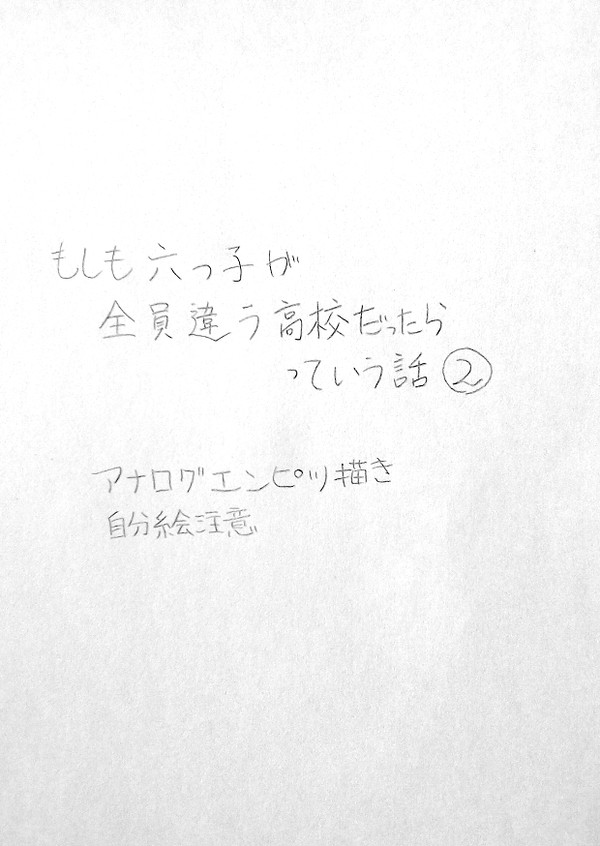 もしも六つ子が
全員違う高校だったら
っていう話②
アナログエンピツ描き
自分絵注意